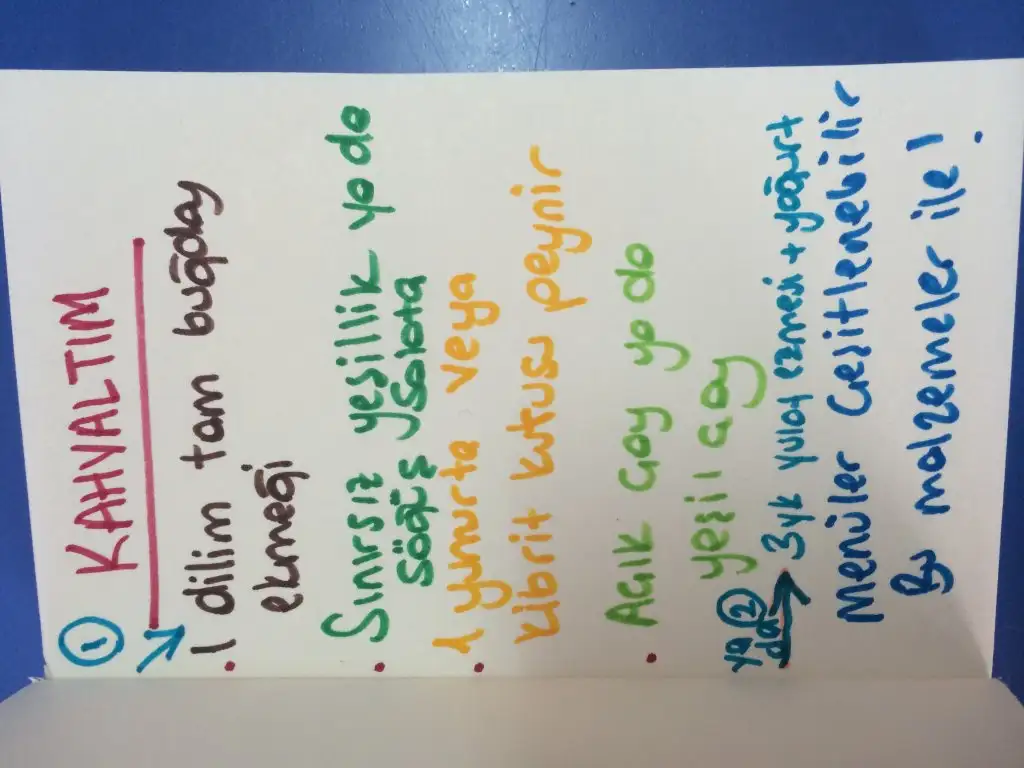 ① KAHVALTIM
. 1 dilim tam buğday
ekmeği
. Sınırsız yeşillik ya da
söğüş salata
. 1 yumurta veya
kibrit kutusu peynir
. Açık çay ya da
yeşil çay
ya da ② 3yk yulaf ezmesi + yoğurt
Menüler çeşitlenebilir
Bu malzemeler ile!